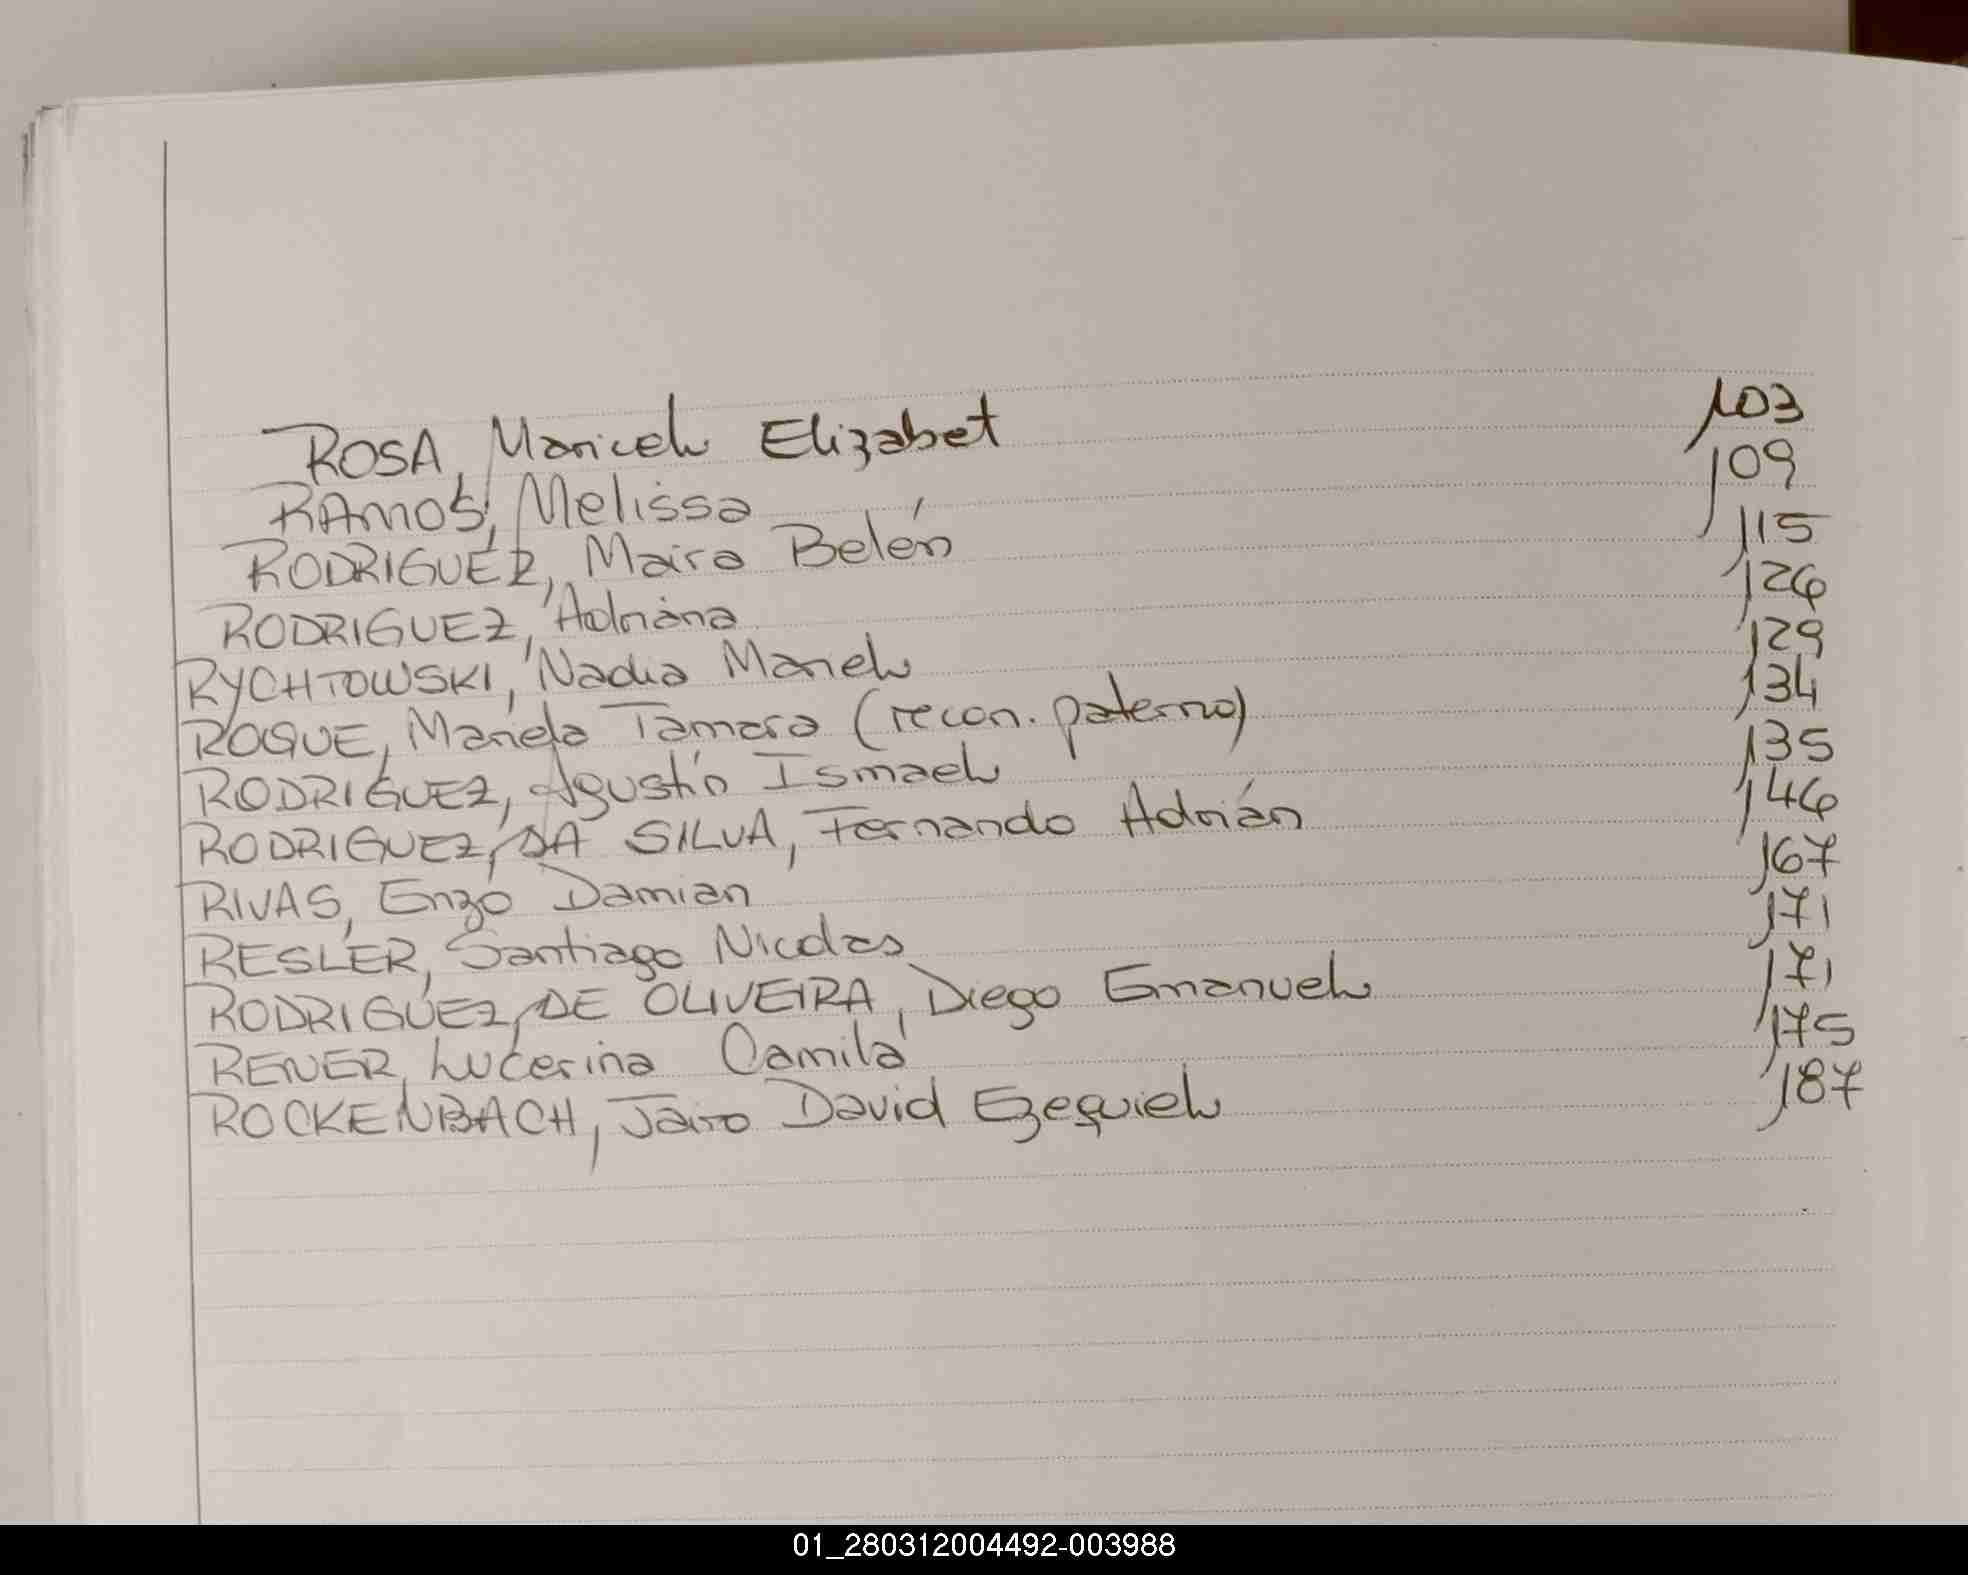 ROSA, Maricel Elizabet 103
RAMOS, Melissa 109
RODRIGUEZ, Maira Belén 115
RODRIGUEZ, Adriana 126
RYCHTOWSKI, Nadia Mariel 129
ROQUE, Mariela Tamara (recon. paterno) 134
RODRIGUEZ, Agustín Ismael 135
RODRIGUEZ, DA SILVA, Fernando Adrián 146
RIVAS, Enzo Damian 167
RESLER, Santiago Nicolas 171
RODRIGUEZ, DE OLIVEIRA, Diego Emanuel 171
RENER, Lucerina Camila 175
ROCKENBACH, Jairo David Ezequiel 187
01_280312004492-003988